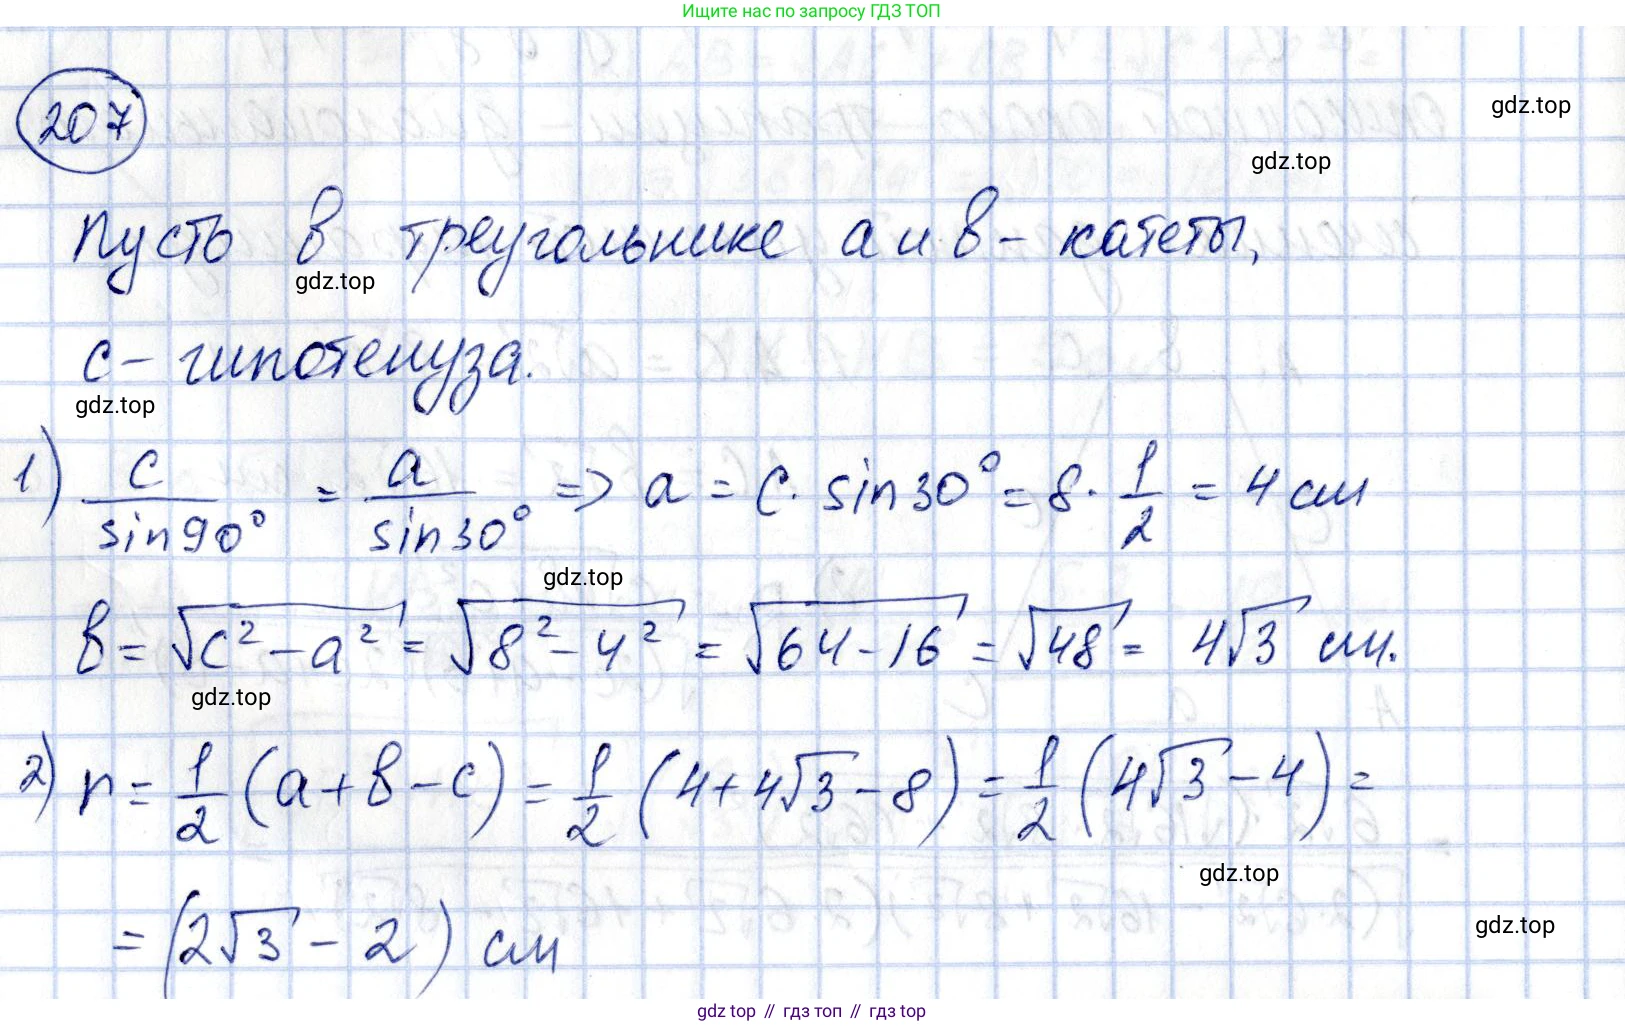 Ищите нас по запросу ГДЗ ТОП
207
gdz.top
gdz.top
Пусть в треугольнике a и b – катеты,
gdz.top
c – гипотенуза.
gdz.top
1) c/sin90° = a/sin30° => a = c · sin30° = 8 · 1/2 = 4 см
gdz.top
b = √(c² – a²) = √(8² – 4²) = √(64 – 16) = √48 = 4√3 см.
gdz.top
2) r = 1/2 (a + b – c) = 1/2 (4 + 4√3 – 8) = 1/2 (4√3 – 4) =
gdz.top
= (2√3 – 2) см
gdz.top
gdz top // гдз топ // гдз top